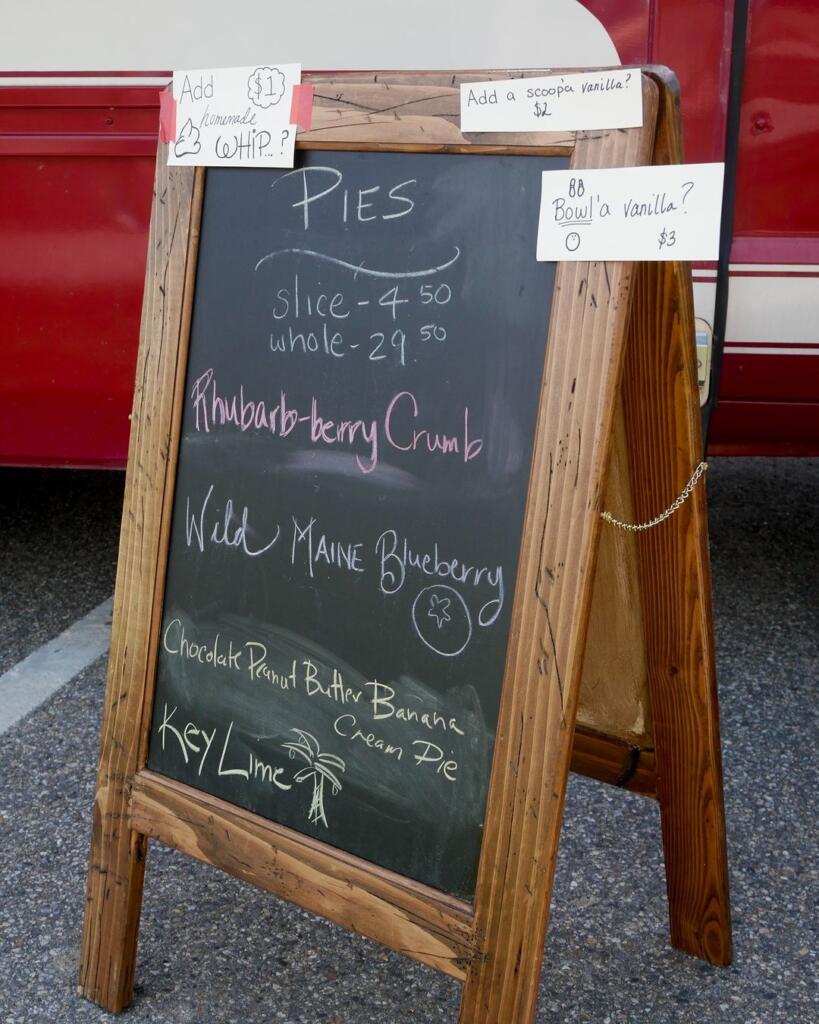 Add $1
homemade
WHIP...?
Add a scoop'a vanilla?
$2
Bowl'a vanilla?
$3
PIES
slice - 4 50
whole - 29.50
Rhubarb-berry Crumb
Wild MAINE Blueberry
Chocolate Peanut Butter Banana
Cream Pie
Key Lime